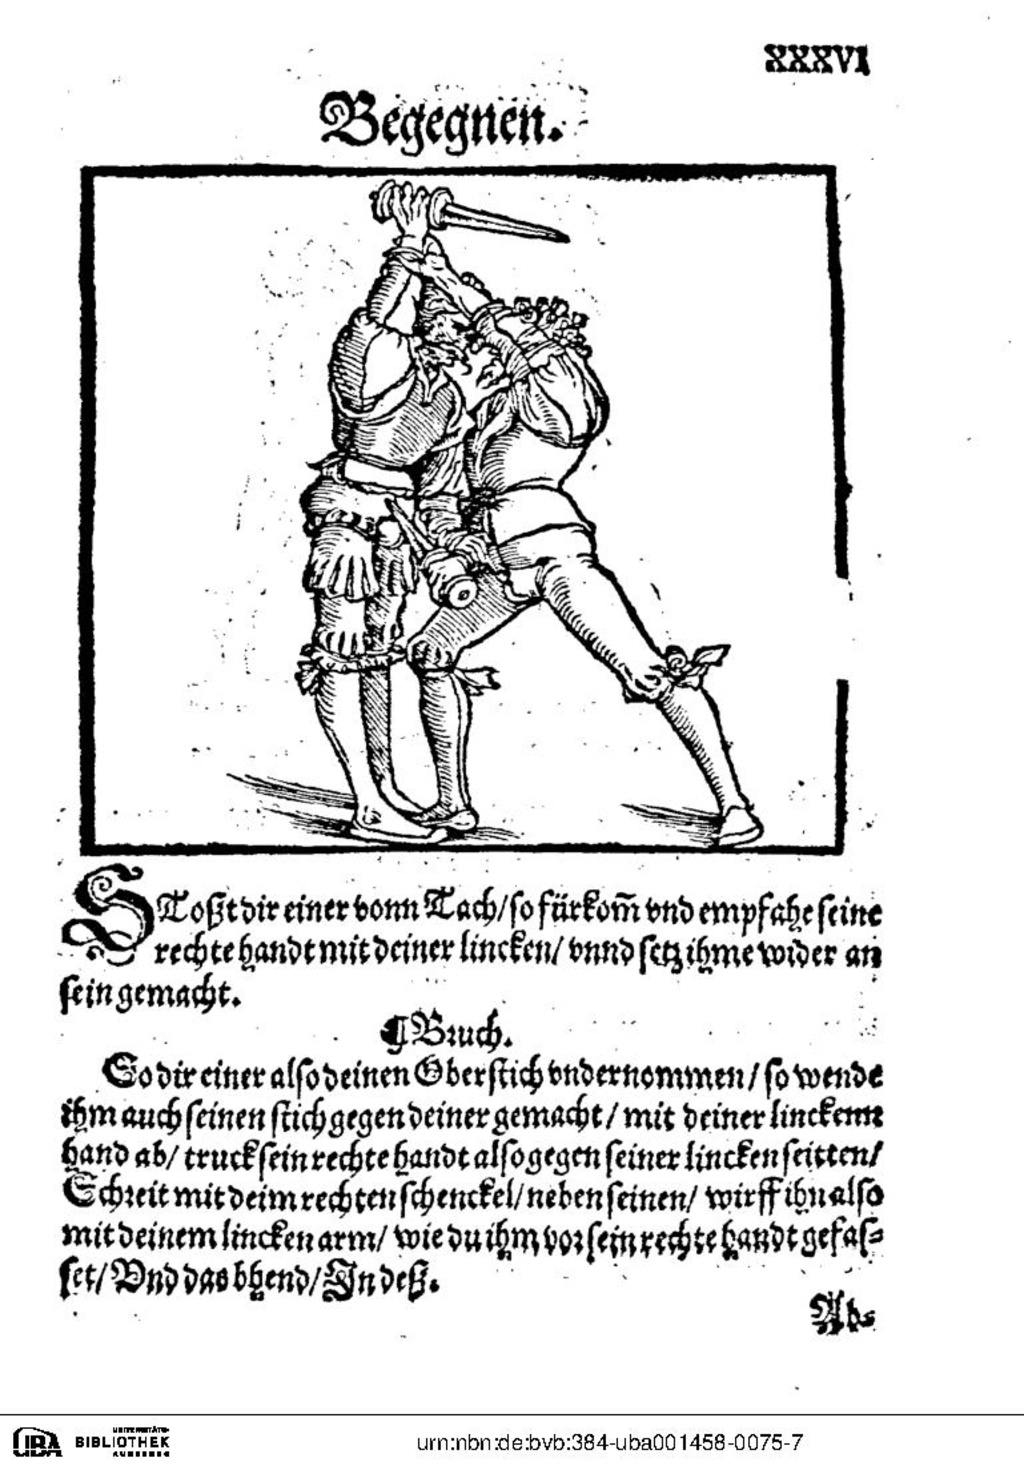 XXXVI
Begegnen.
SToßt dir einer vonn Tach/ so fürkom̃ vnd empfahe seine
rechte handt mit deiner lincken/ vnnd setz ihme wider an
sein gemacht.
¶ Bruch.
So dir einer also deinen Oberstich vndernommen/ so wende
ihm auch seinen stich gegen deiner gemacht/ mit deiner linckenn
hand ab/ truck sein rechte handt also gegen seiner lincken seitten/
Schreit mit deim rechten schenckel/ neben seinen/ wirff ihn also
mit deinem lincken arm/ wie du ihm vor sein rechte handt gefas-
set/ Vnd das bhend/ In deß.
Ab-
UBA UNIVERSITÄTS-
BIBLIOTHEK
AUGSBURG
urn:nbn:de:bvb:384-uba001458-0075-7